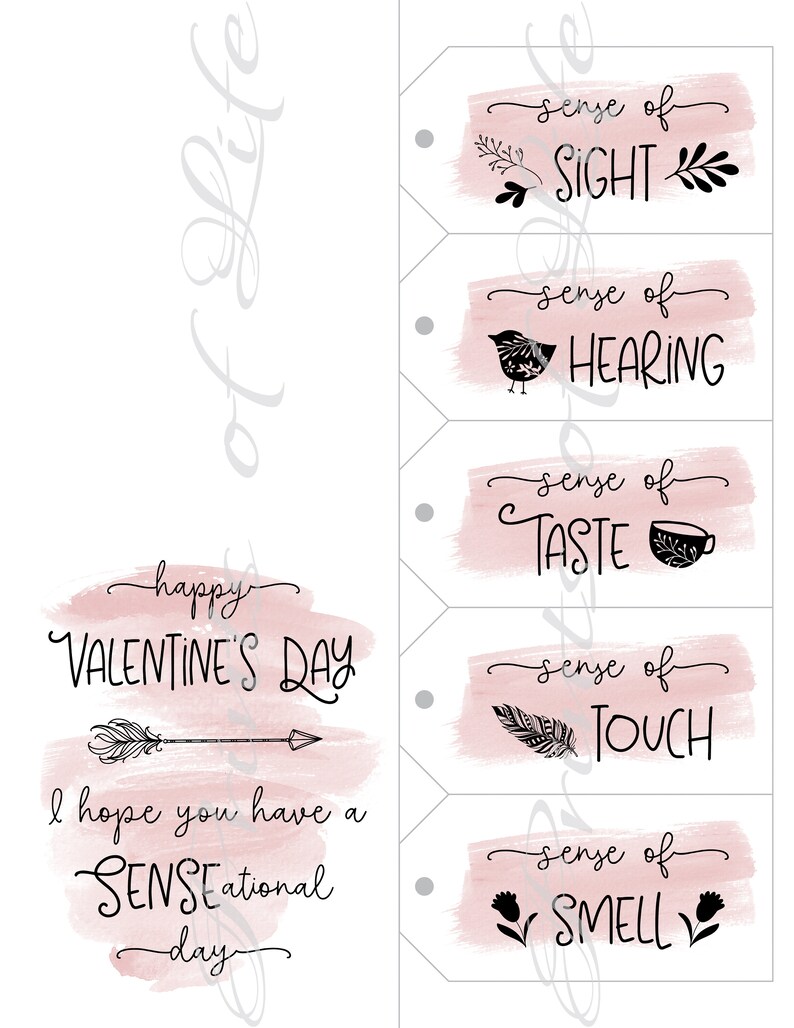 happy
VALENTINE'S DAY
I hope you have a
SENSEational
day
sense of
SIGHT
sense of
HEARING
sense of
TASTE
sense of
TOUCH
sense of
SMELL
Prints of Life
Prints of Life